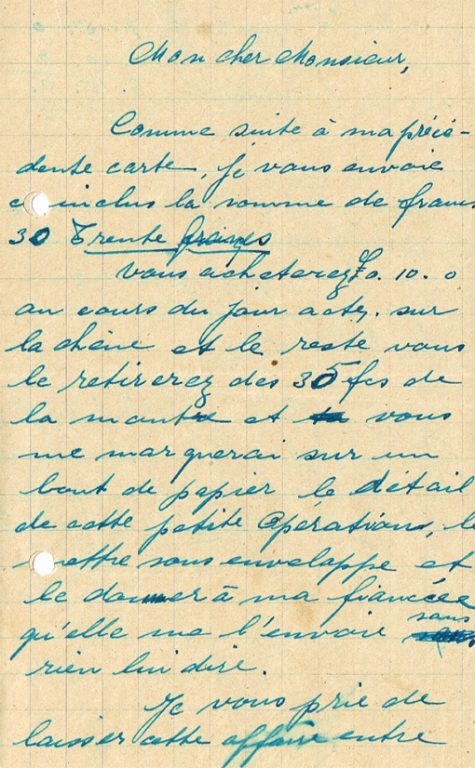 Mon cher Monsieur,
Comme suite à ma précé-
dente carte, je vous envoie
inclus la somme de francs
30 Trente francs
Vous acheterez £ 0. 10. 0
au cours du jour sur
la et le reste vous
le retirerez des 30 fcs de
la montre et vous
me marquerai sur un
bout de papier le détail
de cette petite opération, le
mettre sous enveloppe et
le donner à ma fiancée
qu'elle me l'envoie sans
rien lui dire.
Je vous prie de
laisser cette affaire entre